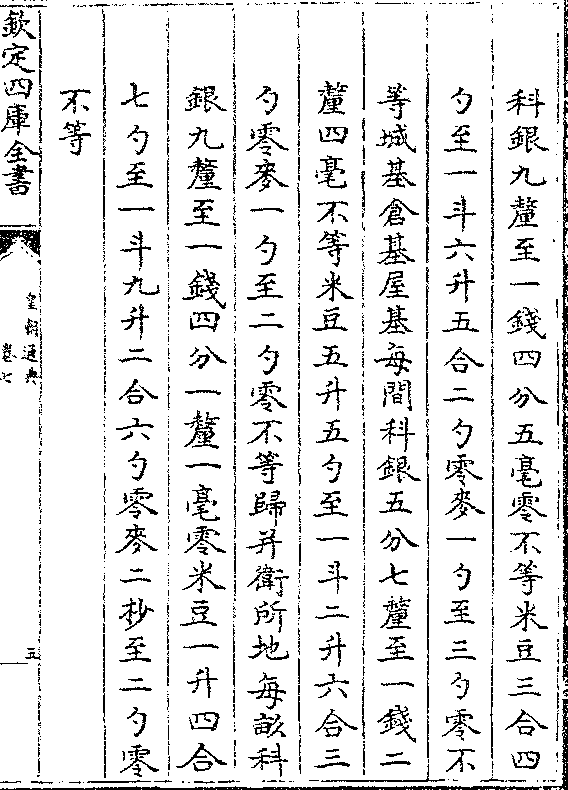 科銀九釐至一錢四分五毫零不等米豆三合四
勺至一斗六升五合二勺零麥一勺至三勺零不
等城基倉基屋基每間科銀五分七釐至一錢二
釐四毫不等米豆五升五勺至一斗二升六合三
勺零麥一勺至二勺零不等歸并衛所地每畝科
銀九釐至一錢四分一釐一毫零米豆一升四合
七勺至一斗九升二合六勺零麥二杪至二勺零
不等
欽定四庫全書
皇朝通典
卷七
五